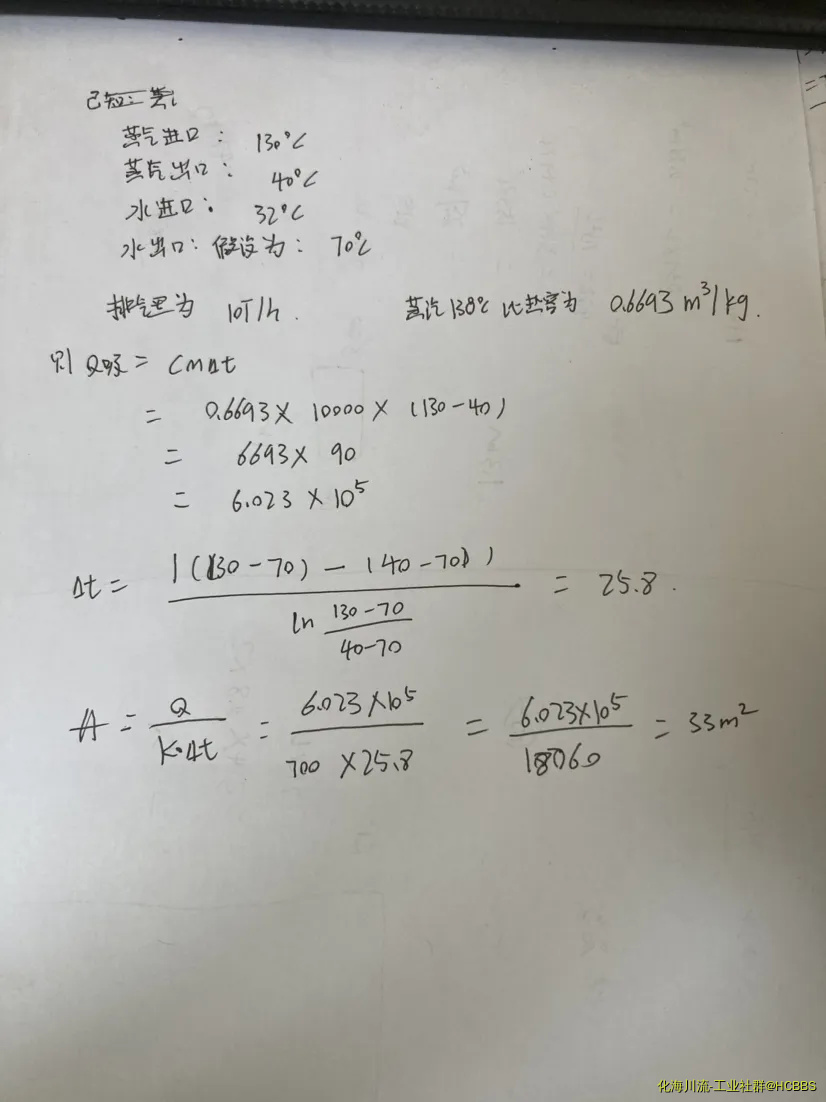 已知:
蒸气进口: 130℃
蒸汽出口: 40℃
水进口: 32℃
水出口: 假设为: 70℃
排气量为 10T/h. 蒸汽138℃ 比热容为 0.6693 m³/kg.
则 Q吸 = CmΔt
= 0.6693 × 10000 × (130-40)
= 6693 × 90
= 6.023 × 10⁵
Δt = ((130-70) - (40-70)) / ln (130-70)/(40-70) = 25.8.
A = Q/(K·Δt) = 6.023×10⁵/(700×25.8) = 6.023×10⁵/18060 = 33m²
化海川流-工业社群@HCBBS